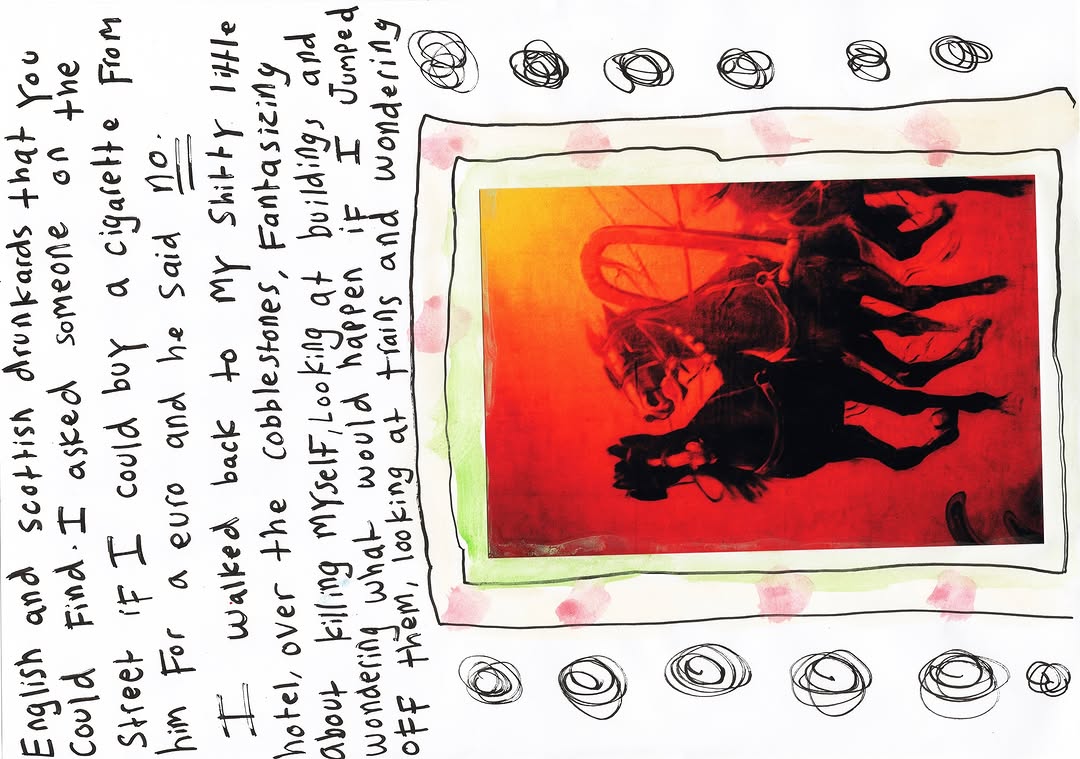 English and scottish drunkards that you
could find. I asked someone on the
street if I could buy a cigarette from
him for a euro and he said no.
I walked back to my shitty little
hotel, over the cobblestones, fantasizing
about killing myself, looking at buildings and
wondering what would happen if I jumped
off them, looking at trains and wondering